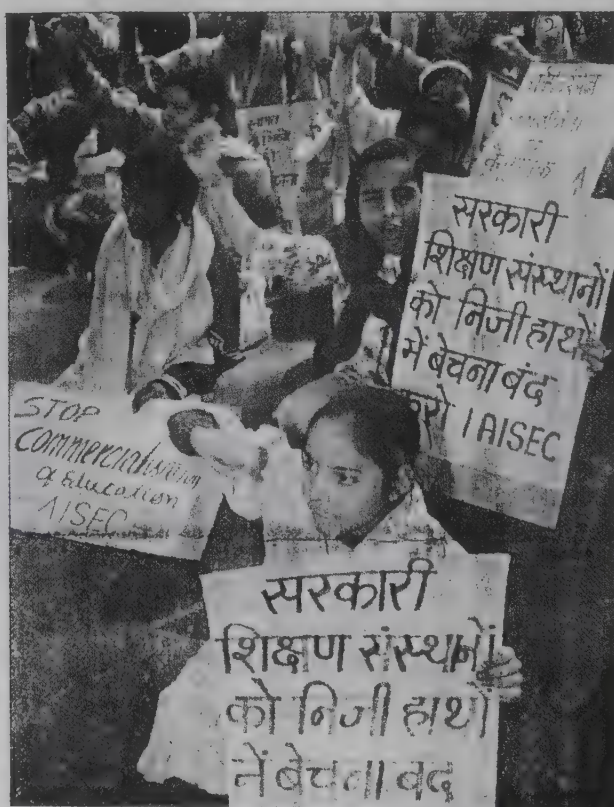 सरकारी
शिक्षण संस्थानों
को निजी हाथों
में बेचना बंद
करो । AISEC
STOP
Commercialisation
of Education
AISEC
सरकारी
शिक्षण संस्थानों
को निजी हाथों
में बेचना बंद